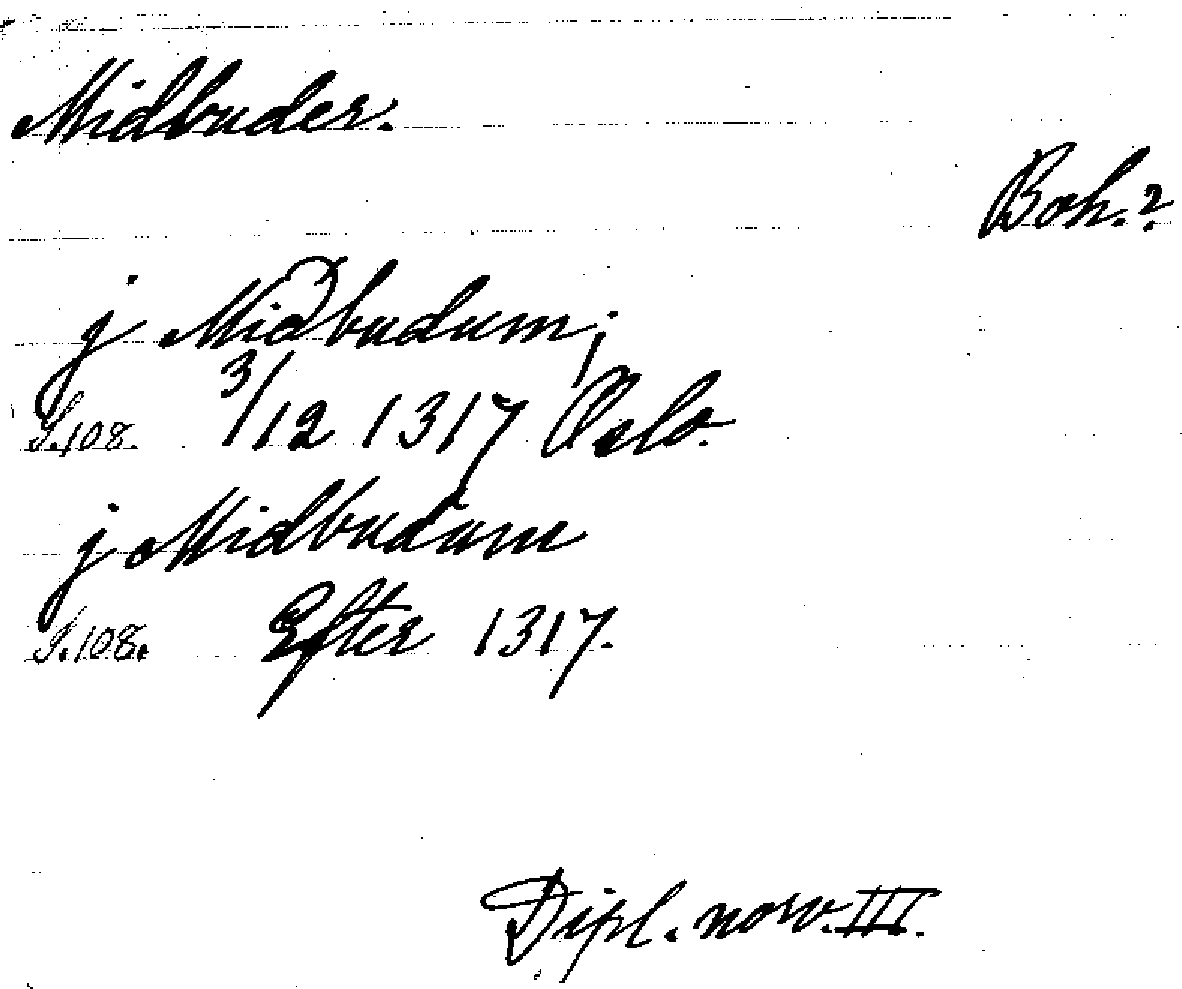 Midbuder.
Boh.?
j Miðbudum;
S.108. 3/12 1317 Oslo.
j Midbudum
S.108. Efter 1317.
Dipl. norv. III.